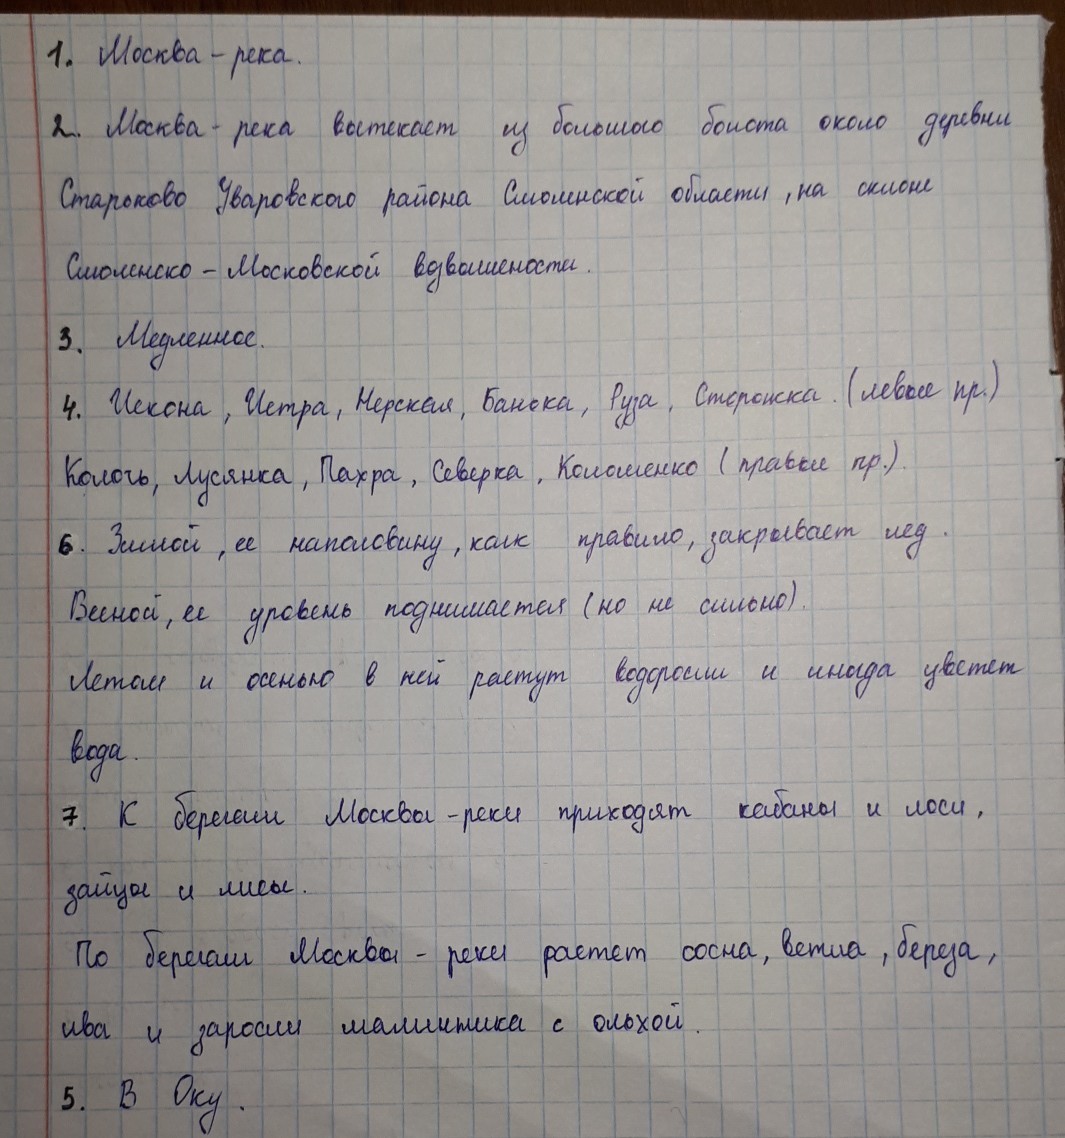 1. Москва-река.
2. Москва-река вытекает из большого болота около деревни
Старьково Уваровского района Смоленской области, на склоне
Смоленско-Московской возвышености.
3. Медленное.
4. Искона, Истра, Нерская, Банька, Руза, Сторожка. (левые пр.)
Колочь, Лусянка, Пахра, Северка, Коломенко (правые пр.).
6. Зимой, ее наполовину, как правило, закрывает лед.
Весной, ее уровень поднимается (но не сильно).
Летом и осенью в ней растут водоросли и иногда цветет
вода.
7. К берегам Москвы-реки приходят кабаны и лоси,
зайцы и лисы.
По берегам Москвы-реки растет сосна, ветла, береза,
ива и заросли малинника с ольхой.
5. В Оку.